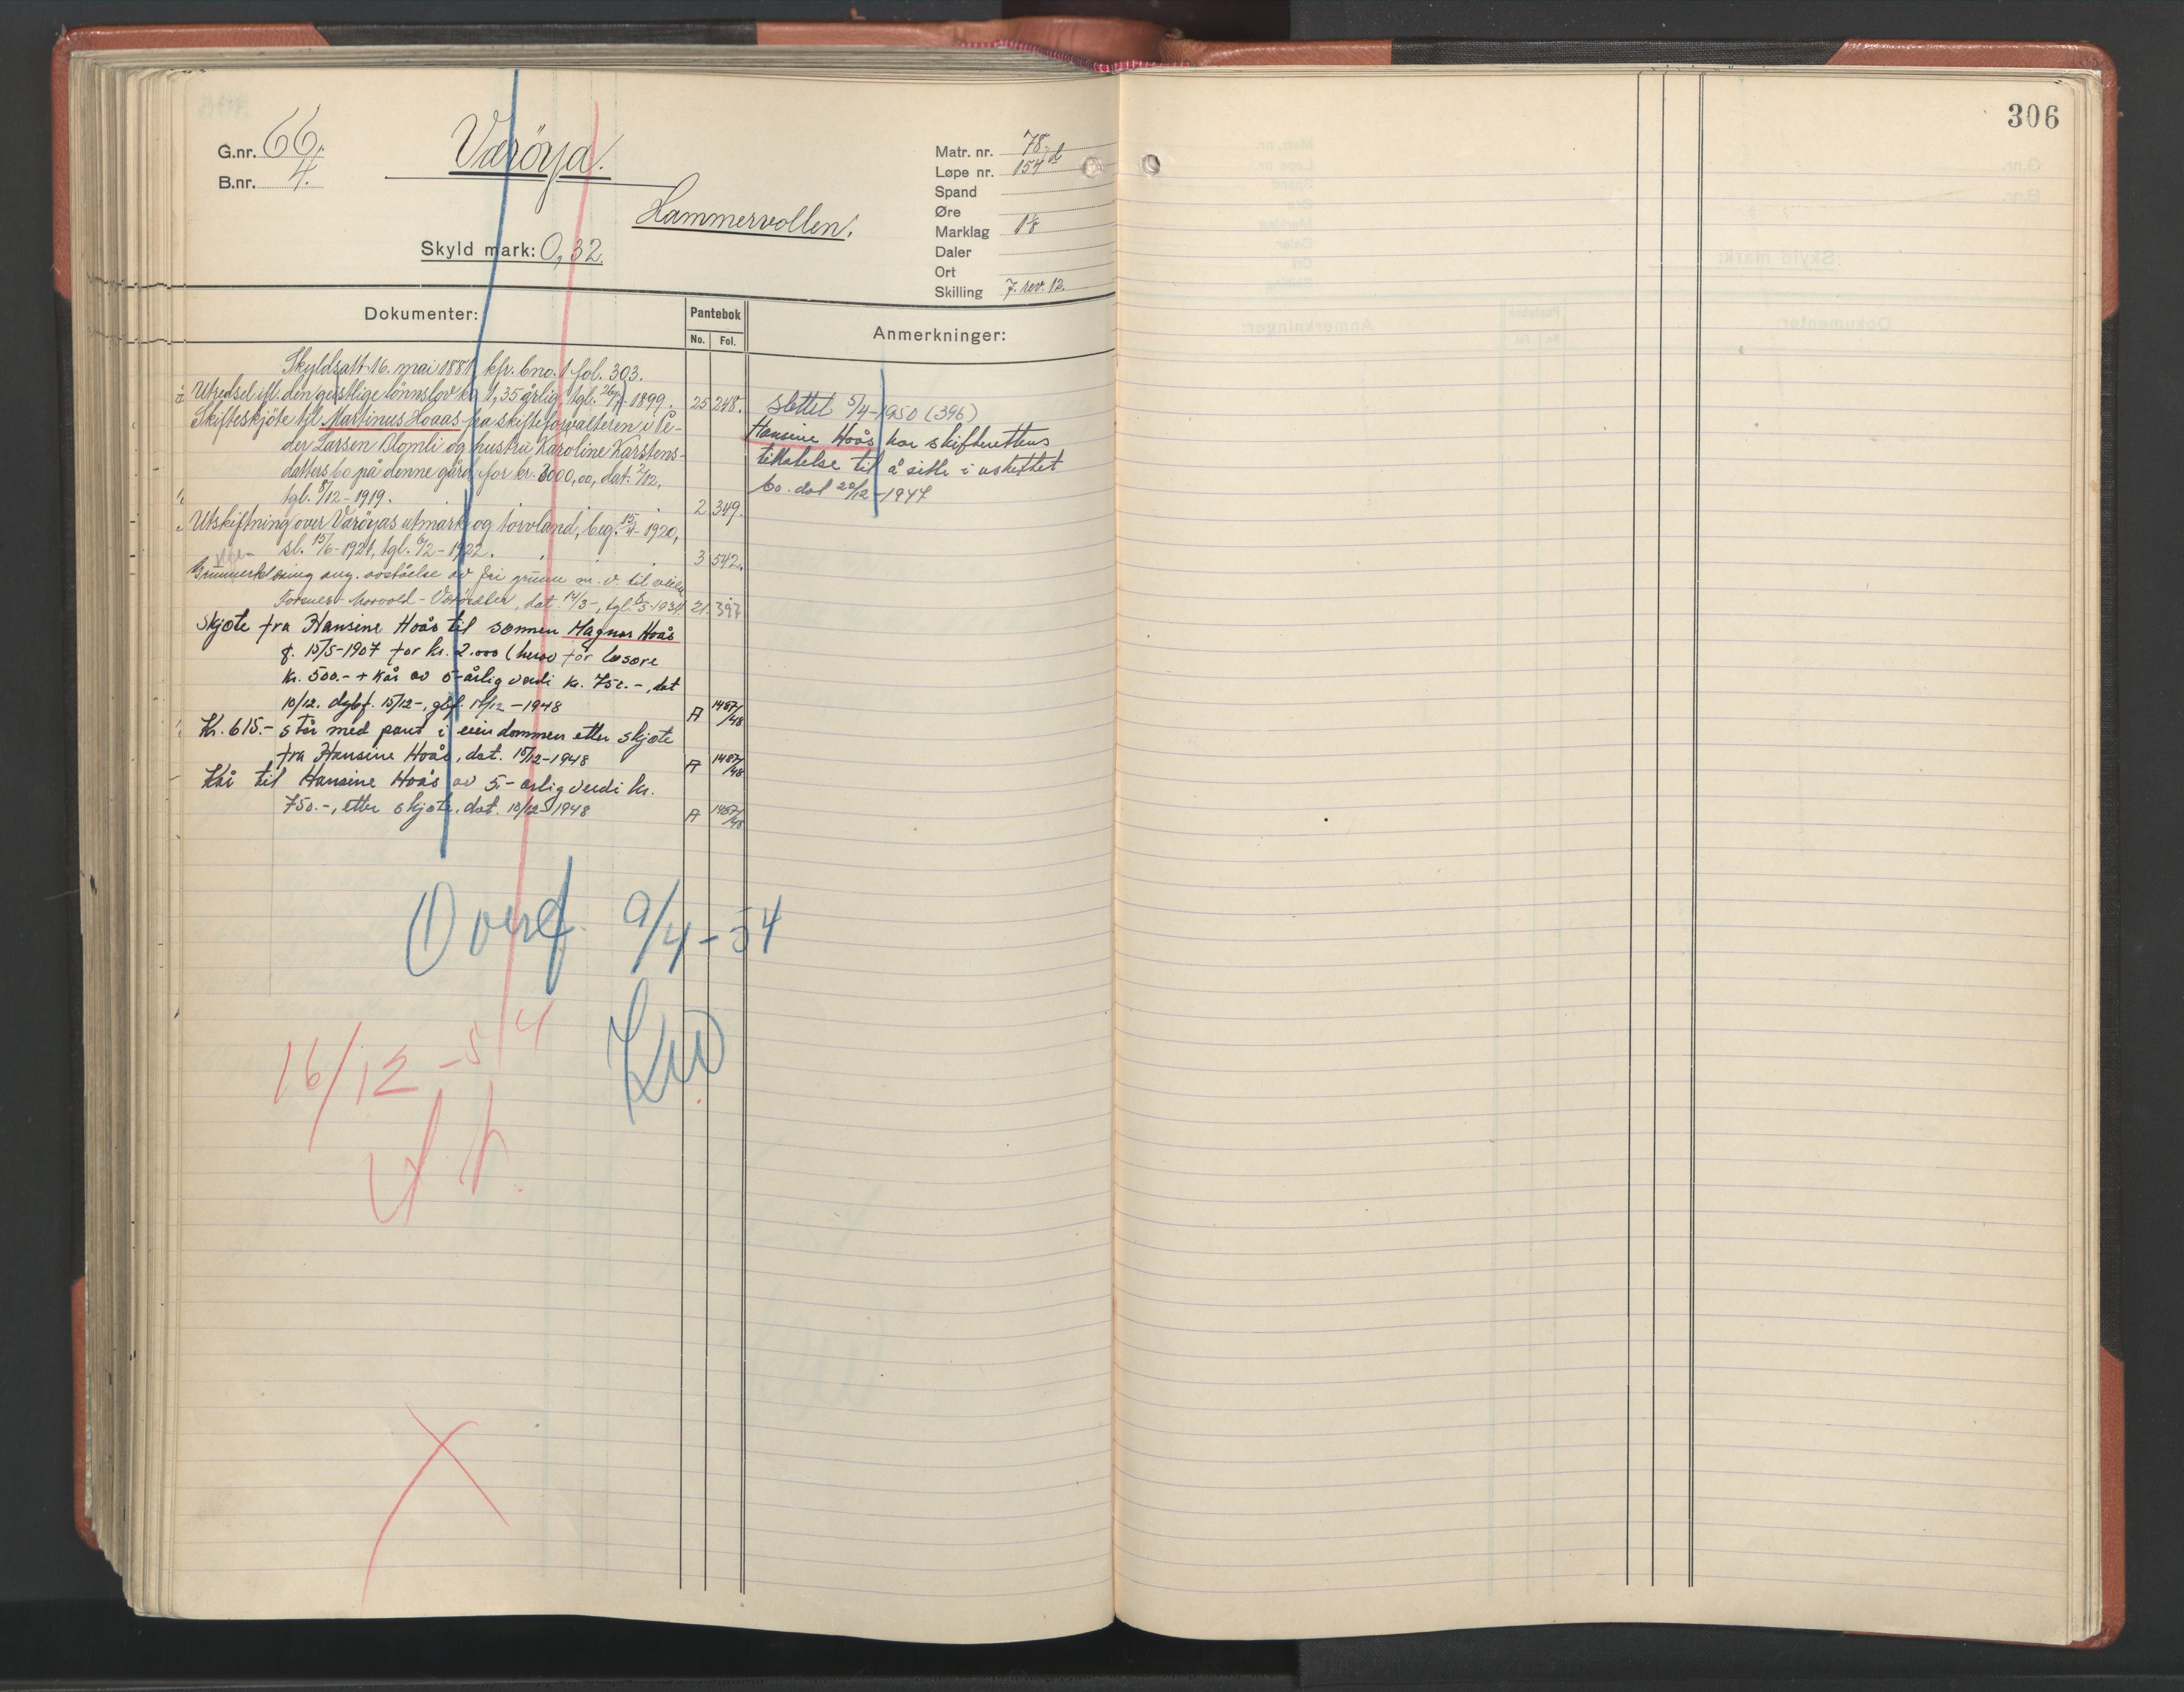 306
G.nr. 66.
B.nr. 4.
Værøya.
Hammervollen.
Skyld mark: 0,32.
Matr. nr. 78.
Løpe nr. 154 d
Spand
Øre
Marklag 18
Daler
Ort
Skilling 7. rev. 12.
Dokumenter:
Pantebok
No. Fol.
Anmerkninger:
Skyldsatt 16. mai 1881, kfr. bno. 1 fol. 303.
Utredsel ifl. den geistlige lönnslov kr. 1,35 årlig, tgl. 26/7-1899. 25 248.
Skifteskjöte til Martinus Hoaas fra skifteforvalteren i Pe-
der Larsen Blomli og hustru Karoline Karstens-
datters bo på denne gård for kr. 3000,00, dat. 2/12,
tgl. 8/12-1919. 2 349.
Utskiftning over Væröyas utmark og torvland, beg. 15/4-1920,
sl. 15/6-1921, tgl. 6/2-1922. 3 542.
ang. avståelse av fri grunn m. v. til veien
dat. 14/3-, tgl. 21. 397
Skjøte fra Hansine Hoås til sønnen Magnar Hoås
f. 15/5-1907 for kr. 2.000 (herav for løsøre
kr. 500.- + kår av 5-årlig verdi kr. 750.-, dat
10/12. dgbf. 15/12-, gbf. 17/12-1948 A 1487/48
Kr. 615.- står med pant i eiendommen etter skjøte
fra Hansine Hoås, dat. 10/12-1948 A 1487/48
Kår til Hansine Hoås av 5.- årlig verdi kr.
750.-, etter skjøte, dat. 10/12-1948 A 1487/48
slettet 5/4-1950 (396)
Hansine Hoås har skifterettens
tillatelse til å sitte i uskiftet
bo. dat 20/12-1947
Overf. 9/4-54
16/12-54